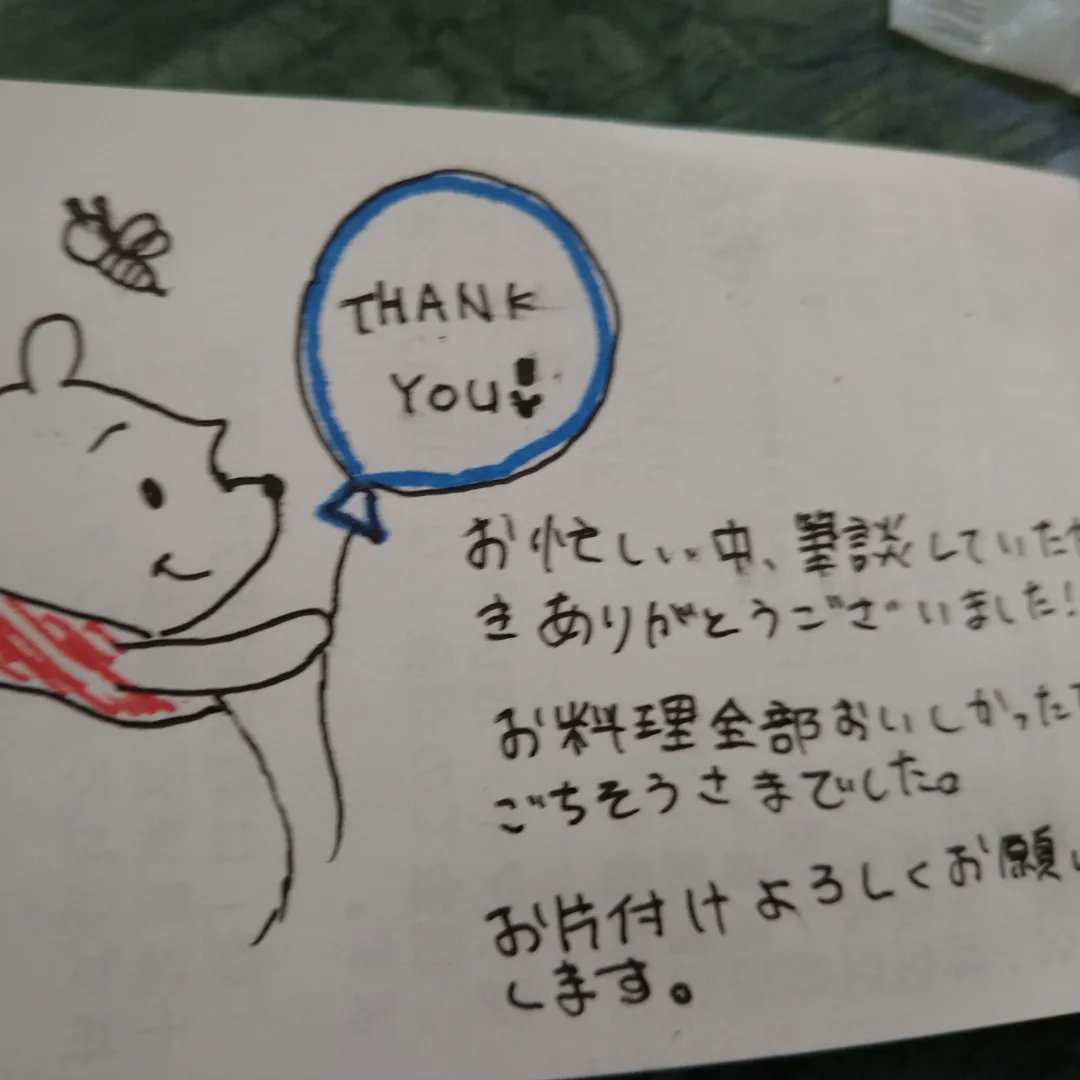 THANK
YOU!
お忙しい中、筆談していただ
きありがとうございました!
お料理全部おいしかったで
ごちそうさまでした。
お片付けよろしくお願い
します。